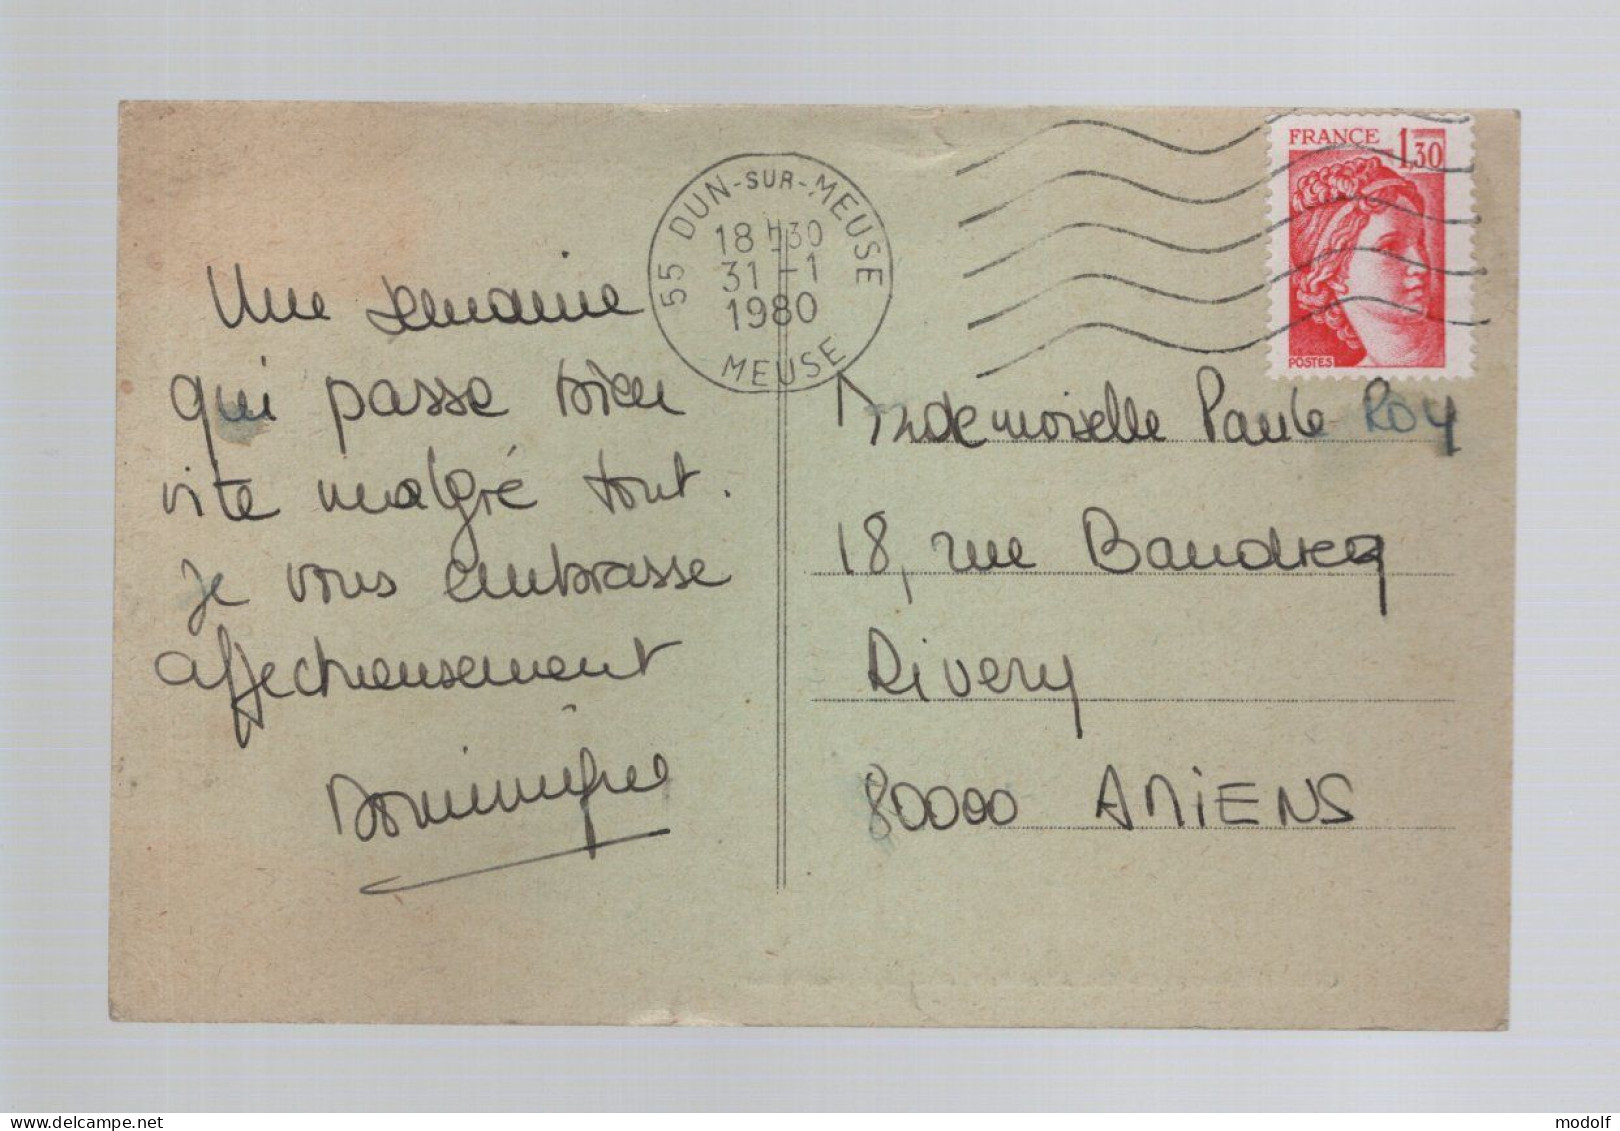 Une semaine
qui passe bien
vite malgré tout.
je vous embrasse
affectueusement
Dominique
55 DUN-SUR-MEUSE
18H30
31-1
1980
MEUSE
FRANCE 1,30
POSTES
Mademoiselle Paule ROY
18, rue Baudrez
Rivery
80000 AMIENS
www.delcampe.net
modolf